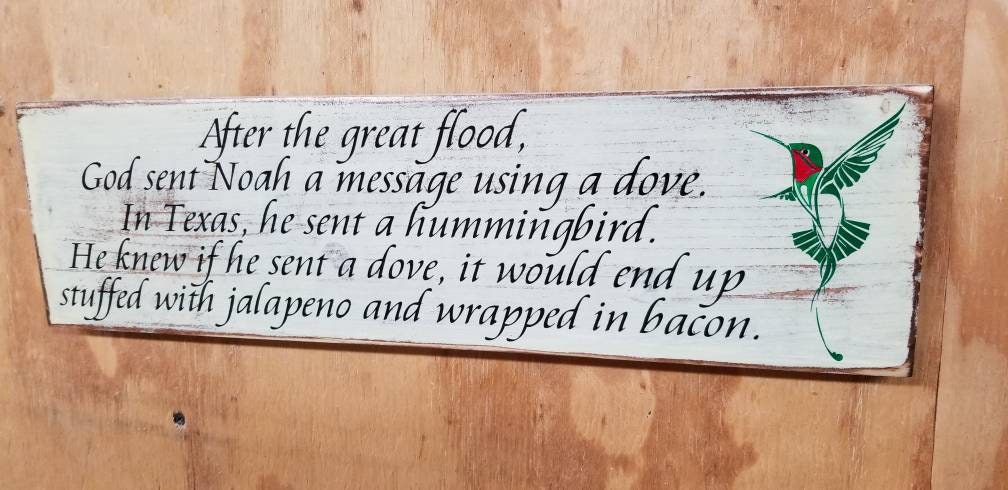 After the great flood,
God sent Noah a message using a dove.
In Texas, he sent a hummingbird.
He knew if he sent a dove, it would end up
stuffed with jalapeno and wrapped in bacon.